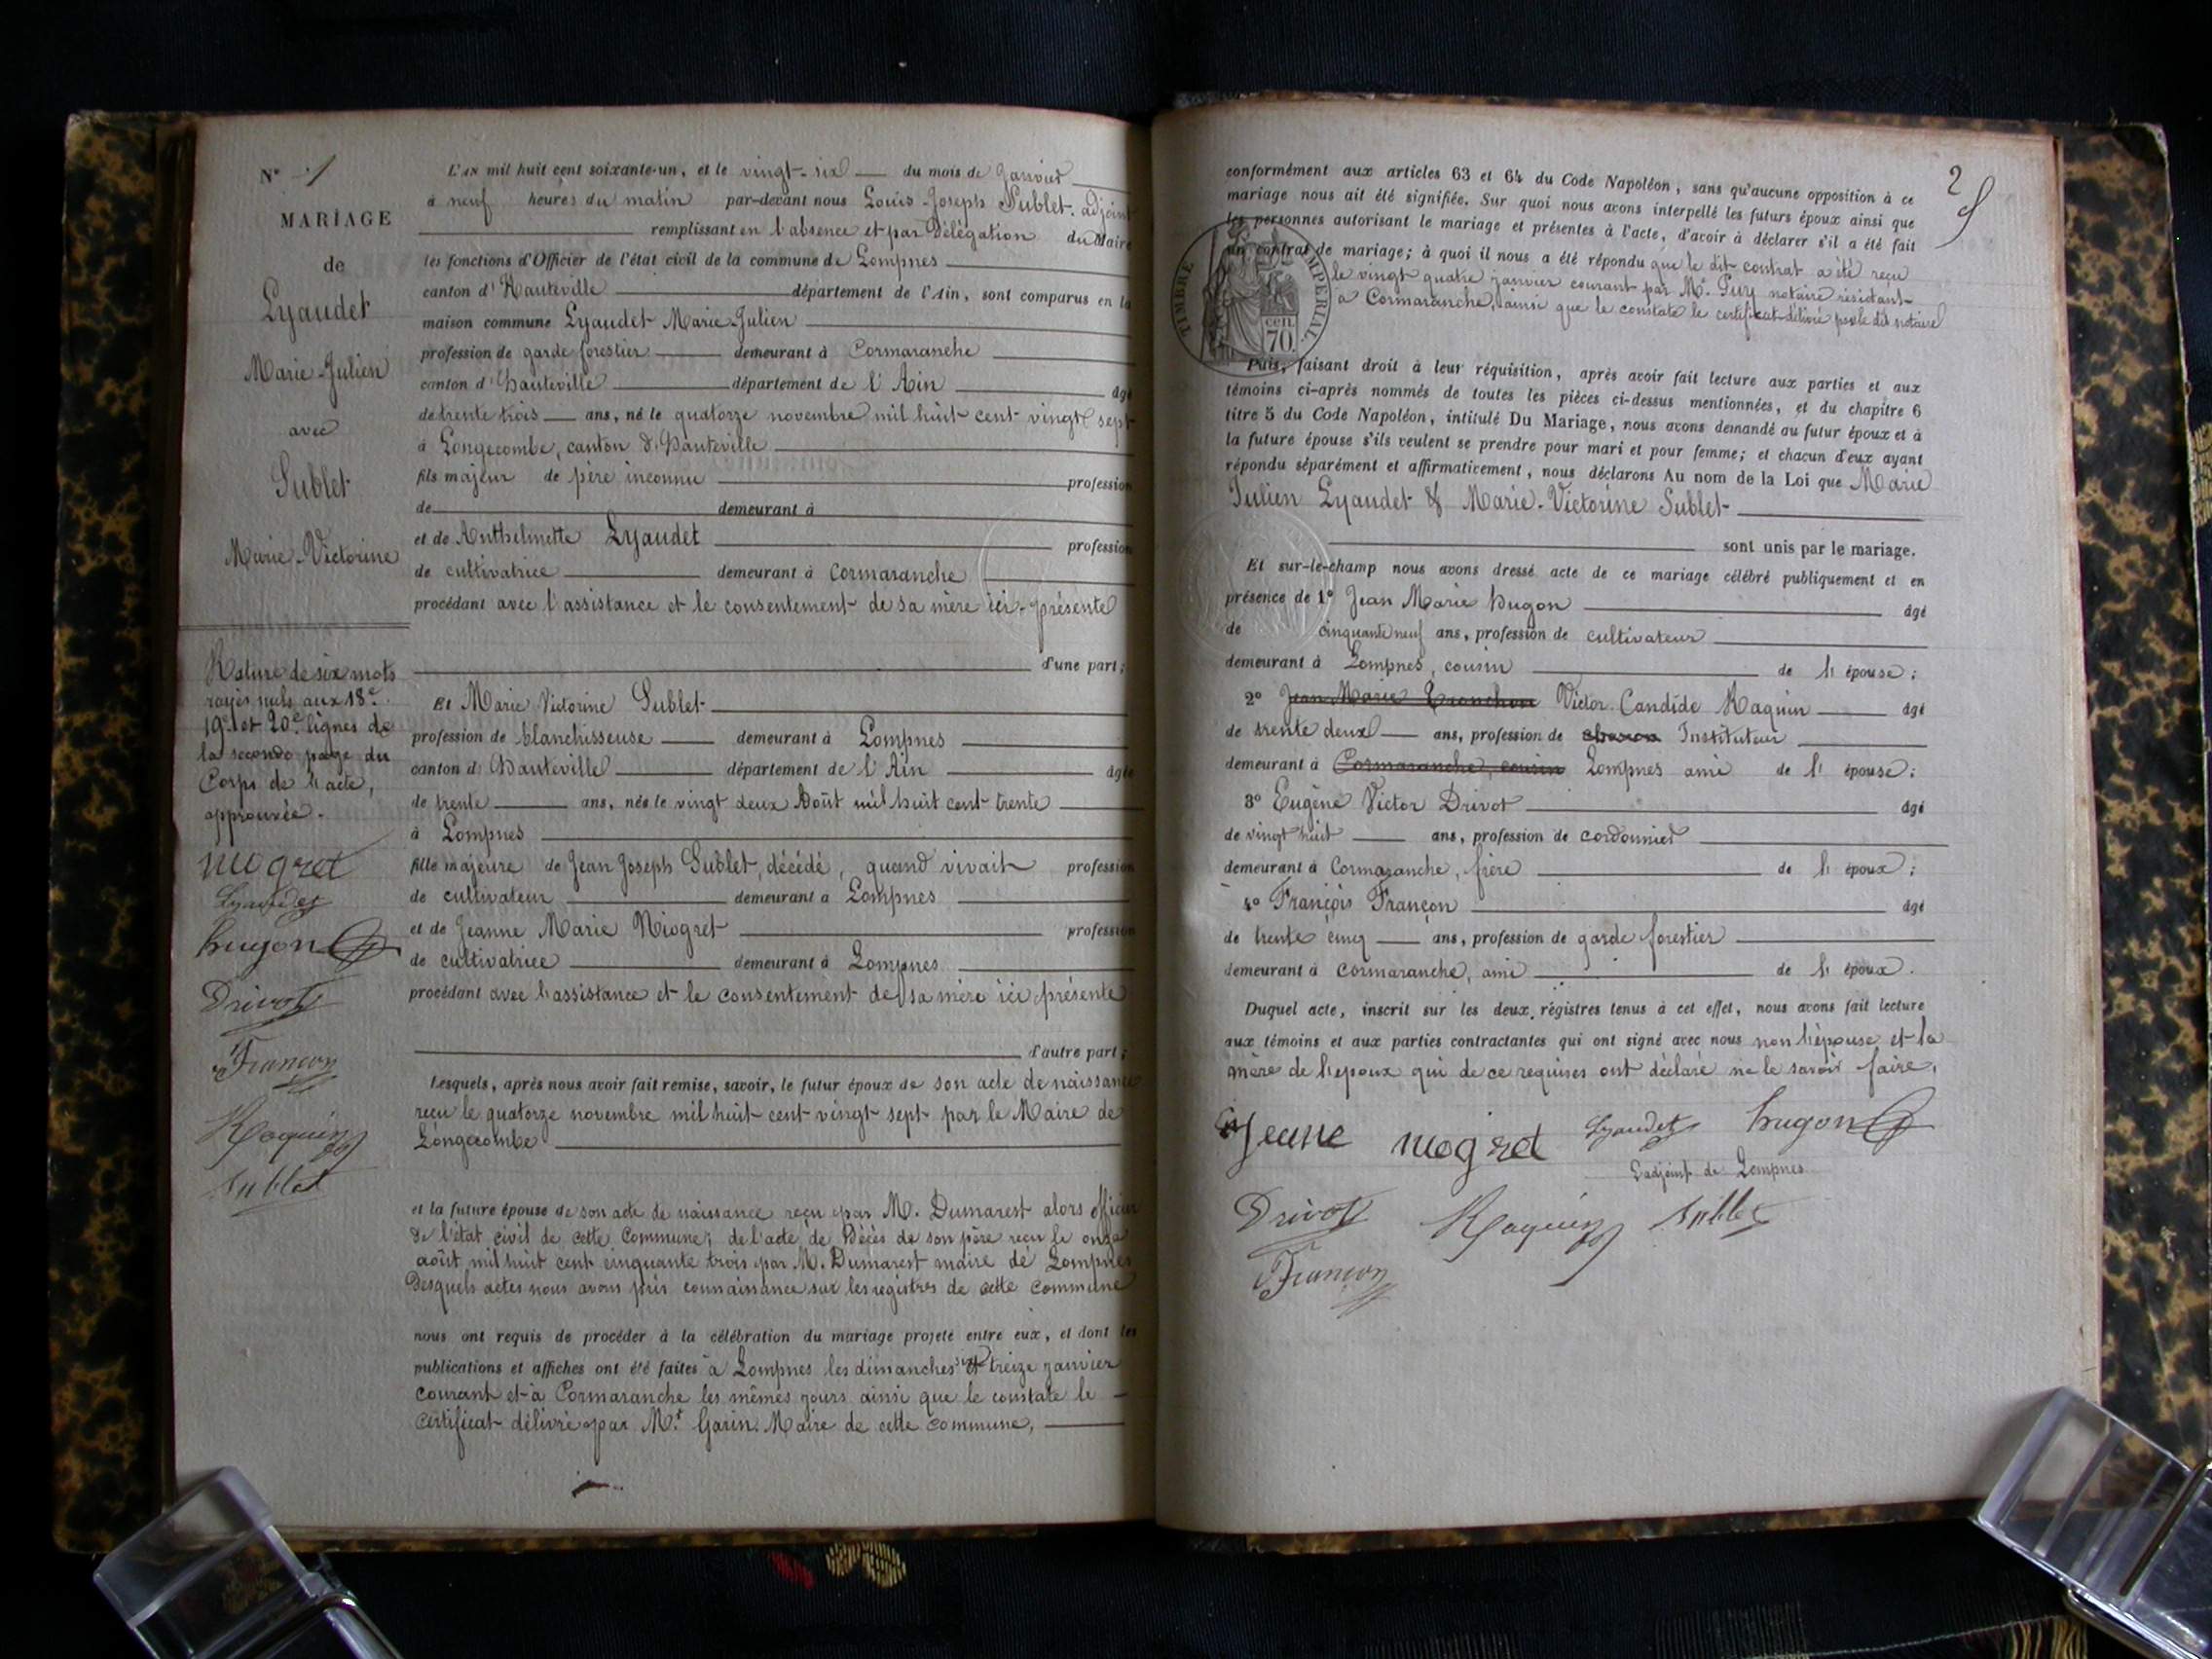 N° 1
MARIAGE
de
Lyaudet
Marie-Julien
avec
Sublet
Marie-Victorine
Rature de six mots
rayés nuls aux 18e
19e et 20e lignes de
la seconde page du
Corps de l'acte,
approuvée.
niogret
Lyaudet
hugon
Drivot
Françon
Raquin
Sublet
L'AN mil huit cent soixante-un, et le vingt-six du mois de Janvier
à neuf heures du matin par-devant nous Louis-Joseph Sublet, adjoint
remplissant en l'absence et par délégation du Maire
les fonctions d'Officier de l'état civil de la commune de Lompnes
canton d'Hauteville département de l'Ain, sont comparus en la
maison commune Lyaudet Marie Julien
profession de garde forestier demeurant à Cormaranche
canton d'hauteville département de l'Ain âgé
de trente trois ans, né le quatorze novembre mil huit cent vingt sept
à Longecombe, canton d'hauteville
fils majeur de père inconnu profession
de demeurant à
et de Anthelmette Lyaudet profession
de cultivatrice demeurant à Cormaranche
procédant avec l'assistance et le consentement de sa mère ici-présente
d'une part;
Et Marie Victorine Sublet
profession de blanchisseuse demeurant à Lompnes
canton d'hauteville département de l'Ain âgée
de trente ans, née le vingt deux Août mil huit cent trente
à Lompnes
fille majeure de Jean Joseph Sublet, décédé, quand vivait profession
de cultivateur demeurant à Lompnes
et de Jeanne Marie Niogret profession
de cultivatrice demeurant à Lompnes
procédant avec l'assistance et le consentement de sa mère ici présente
d'autre part;
Lesquels, après nous avoir fait remise, savoir, le futur époux de son acte de naissance
reçu le quatorze novembre mil huit cent vingt sept par le Maire de
Longecombe
et la future épouse de son acte de naissance reçu par M. Dumarest alors officier
de l'état civil de cette Commune; de l'acte de Décès de son père reçu le onze
août mil huit cent cinquante trois par M. Dumarest maire de Lompnes
Desquels actes nous avons pris connaissance sur les registres de cette commune
nous ont requis de procéder à la célébration du mariage projeté entre eux, et dont les
publications et affiches ont été faites à Lompnes les dimanches six et treize janvier
courant et à Cormaranche les mêmes jours ainsi que le constate le
certificat délivré par Mr. Garin. Maire de cette commune,
2
conformément aux articles 63 et 64 du Code Napoléon, sans qu'aucune opposition à ce
mariage nous ait été signifiée. Sur quoi nous avons interpellé les futurs époux ainsi que
les personnes autorisant le mariage et présentes à l'acte, d'avoir à déclarer s'il a été fait
un contrat de mariage; à quoi il nous a été répondu que le dit contrat a été reçu
le vingt quatre janvier courant par Me. Pury notaire résidant
à Cormaranche, ainsi que le constate le certificat délivré par le dit notaire
TIMBRE IMPERIAL
cen.
70.
Puis, faisant droit à leur réquisition, après avoir fait lecture aux parties et aux
témoins ci-après nommés de toutes les pièces ci-dessus mentionnées, et du chapitre 6
titre 5 du Code Napoléon, intitulé Du Mariage, nous avons demandé au futur époux et à
la future épouse s'ils veulent se prendre pour mari et pour femme; et chacun d'eux ayant
répondu séparément et affirmativement, nous déclarons Au nom de la Loi que Marie
Julien Lyaudet & Marie-Victorine Sublet
sont unis par le mariage.
Et sur-le-champ nous avons dressé acte de ce mariage célébré publiquement et en
présence de 1° Jean Marie hugon âgé
de cinquante neuf ans, profession de cultivateur
demeurant à Lompnes, cousin de l'épouse;
2° Jean Marie Tronchon Victor Candide Raquin âgé
de trente deux ans, profession de charon Instituteur
demeurant à Cormaranche, cousin Lompnes ami de l'épouse;
3° Eugène Victor Drivot âgé
de vingt huit ans, profession de cordonnier
demeurant à Cormaranche, frère de l'époux;
4° François Françon âgé
de trente cinq ans, profession de garde forestier
demeurant à Cormaranche, ami de l'époux.
Duquel acte, inscrit sur les deux régistres tenus à cet effet, nous avons fait lecture
aux témoins et aux parties contractantes qui ont signé avec nous non l'épouse et la
mère de l'époux qui de ce requises ont déclaré ne le savoir faire.
Jeane niogret Lyaudet hugon
L'adjoint de Lompnes
Drivot Raquin Sublet
Françon